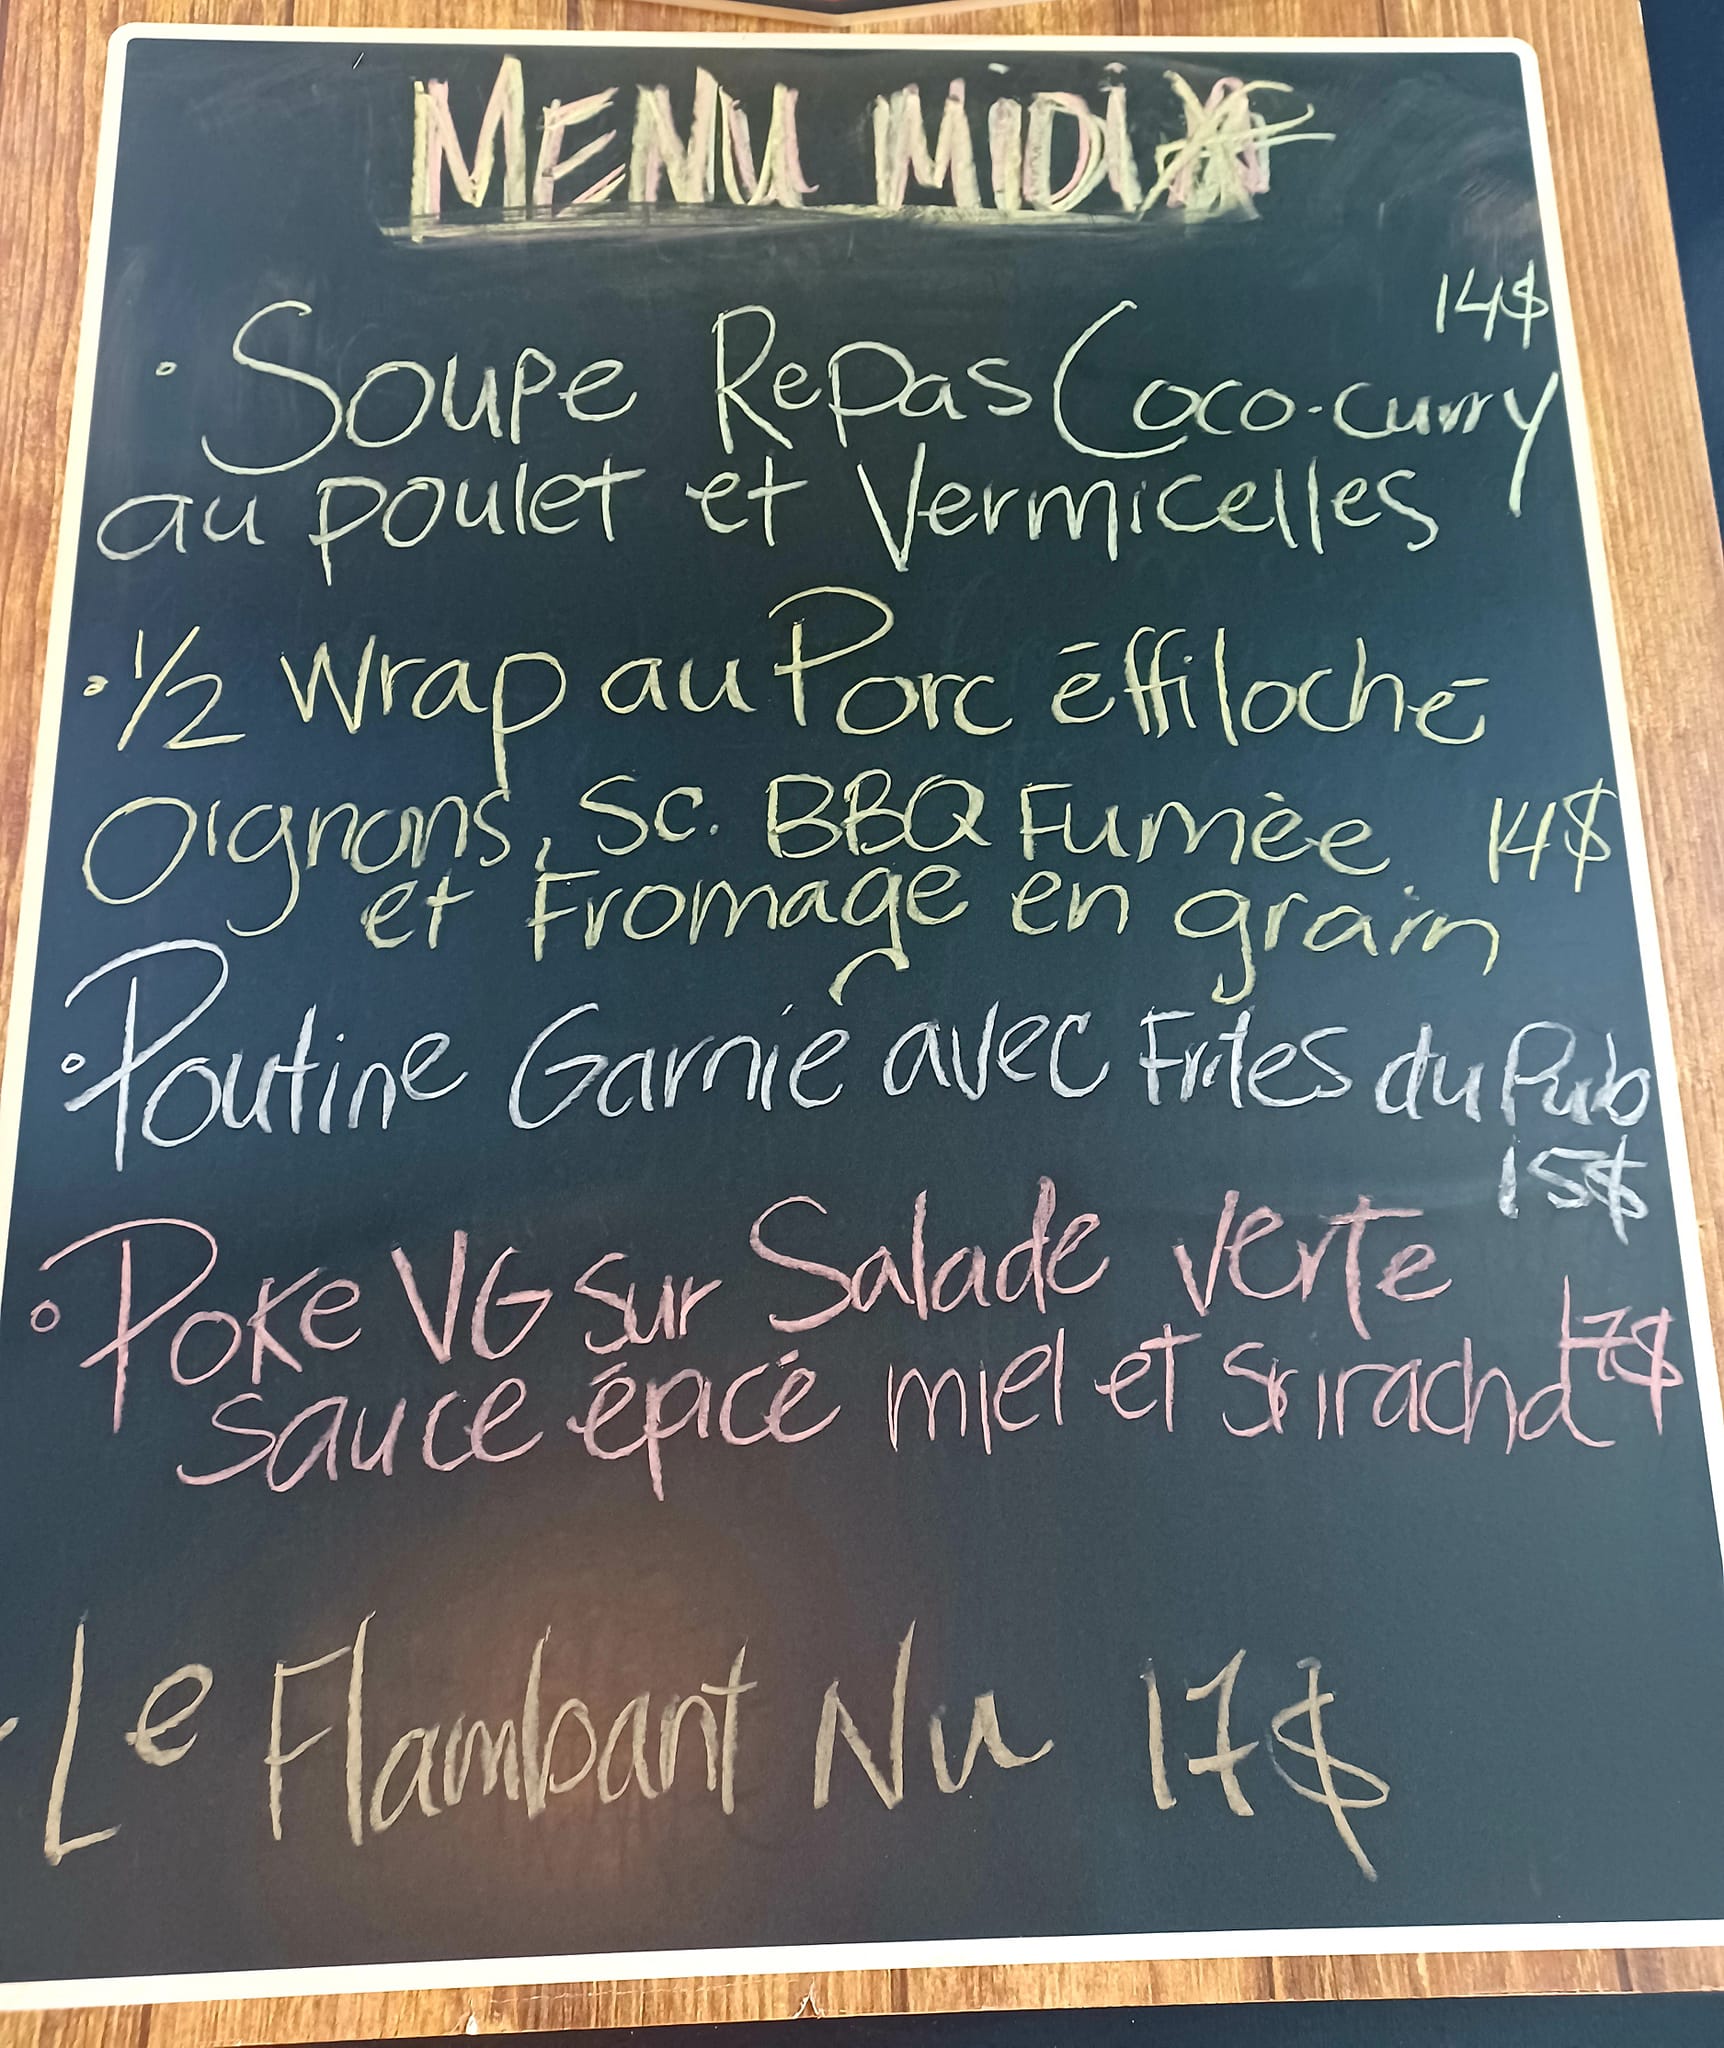 MENU MIDI
14$
• Soupe Repas Coco-curry
au poulet et Vermicelles
• 1/2 Wrap au Porc éffiloché
Oignons, Sc. BBQ Fumèe 14$
et Fromage en grain
• Poutine Garnie avec Frites du Pub
15$
• Poke VG sur Salade verte
17$
sauce épicé miel et Sriracha
• Le Flambant Nu 17$